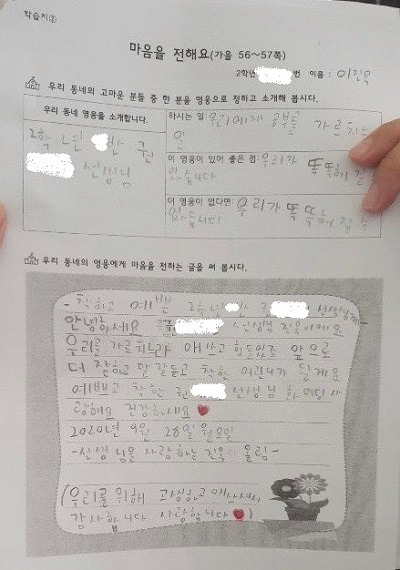 학습지②
마음을 전해요(가을 56~57쪽)
2학년 번 이름 : 이진욱
우리 동네의 고마운 분들 중 한 분을 영웅으로 정하고 소개해 봅시다.
우리 동네 영웅을 소개합니다.
2학년 반 권
선생님
하시는 일: 우리에게 공부를 가르치는
일
이 영웅이 있어 좋은 점: 우리가 똑똑해질
수 있습니다
이 영웅이 없다면: 우리가 똑똑해질 수
없습니다
우리 동네의 영웅에게 마음을 전하는 글을 써 봅시다.
-착하고 예쁜 2학년 반 권 선생님께-
안녕하세요 권 선생님 진욱이에요
우리를 가르치느라 애쓰고 힘들었죠 앞으로
더 잘하고 말 잘듣고 착한 어린이가 될게요
예쁘고 착한 권 선생님 화이팅 사
랑해요 건강하세요
2020년 9월 28일 월요일
-선생님을 사랑하는 진욱이 올림-
(우리를 위해 고생하고 애쓰셔서
감사합니다 사랑합니다)